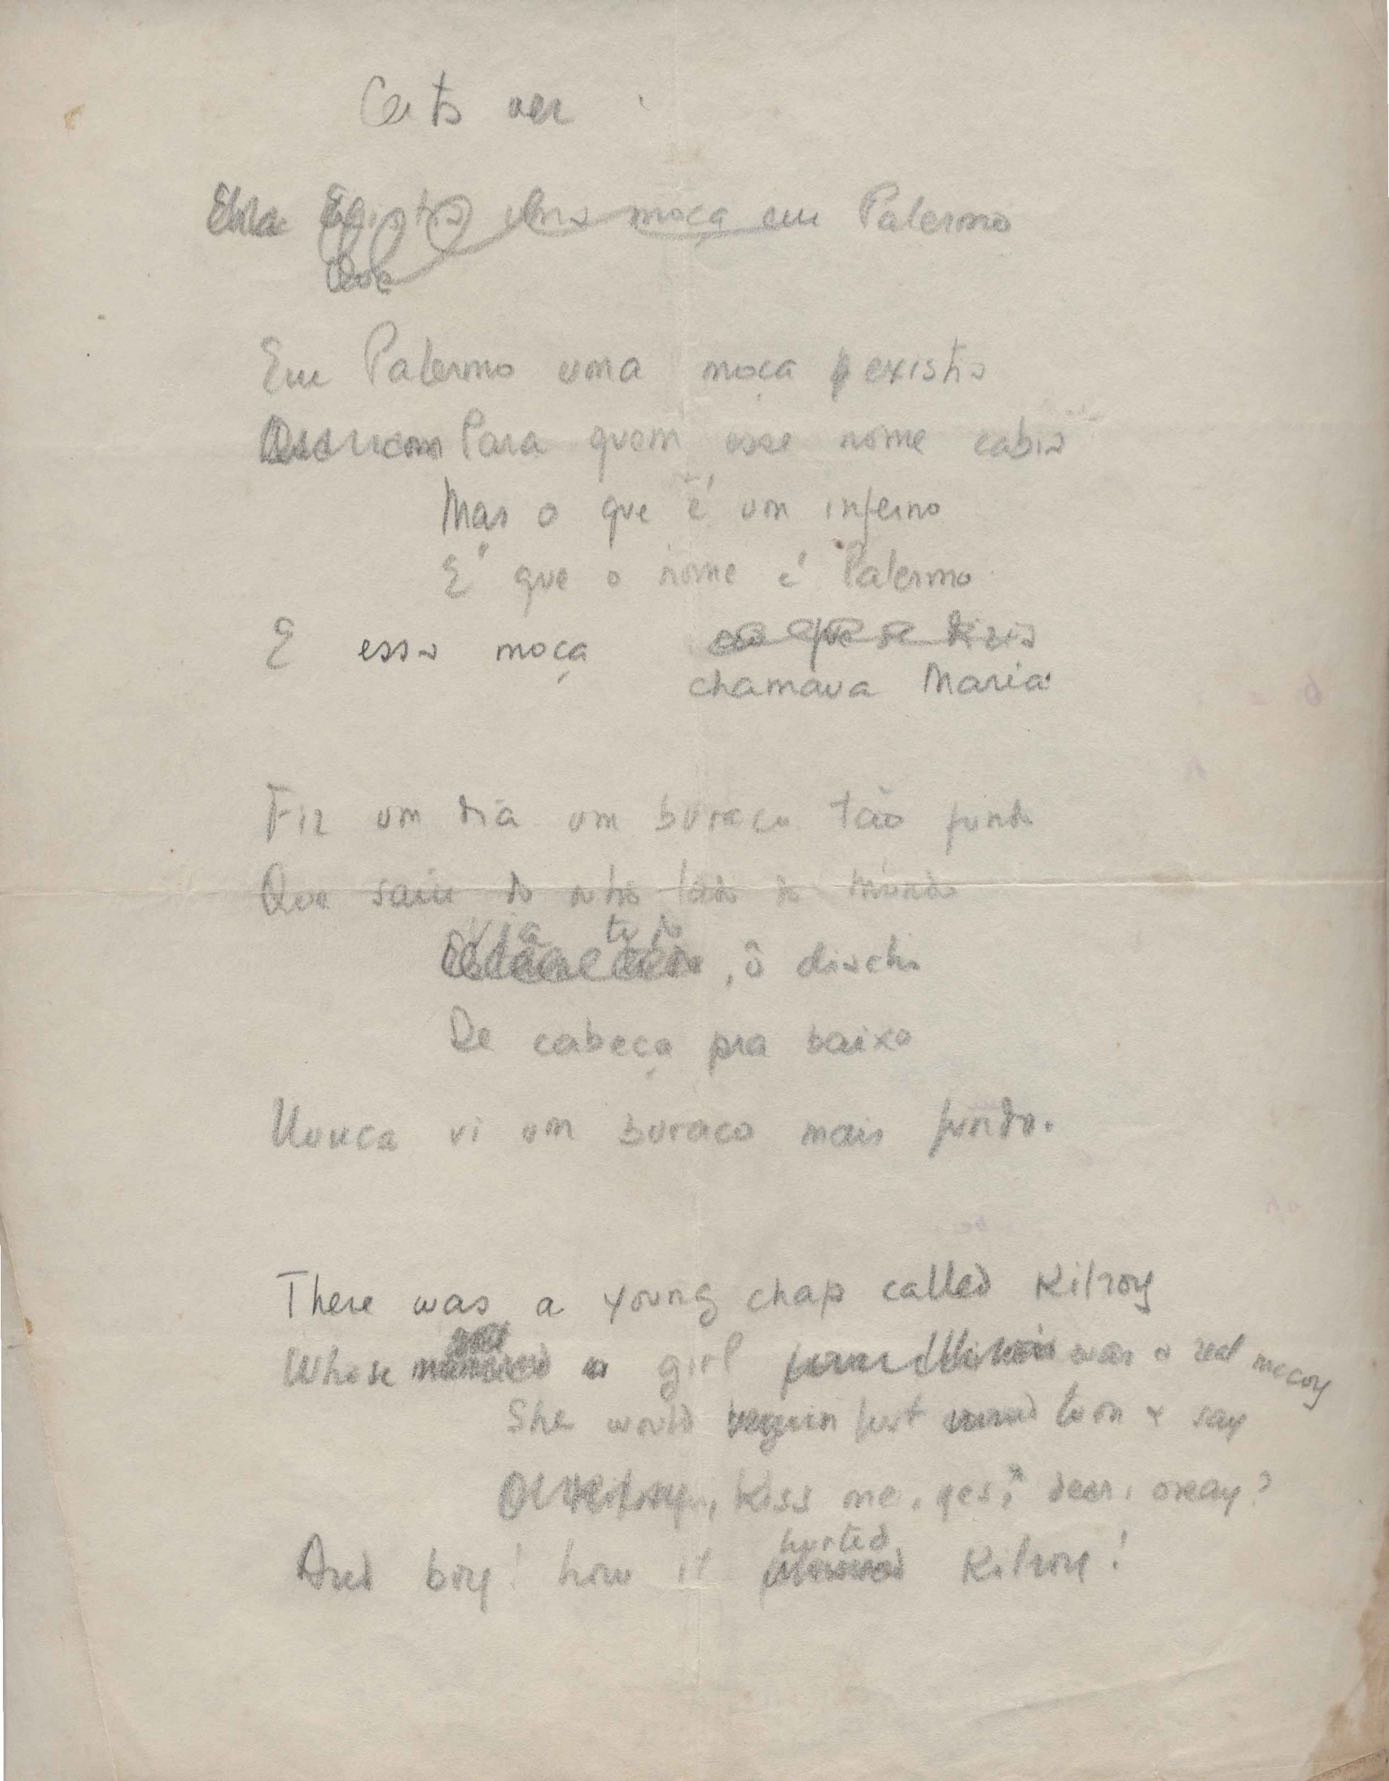 Certa vez
Existia uma moça em Palermo
Que
Em Palermo uma moça existia
Para quem esse nome cabia
Mas o que é um inferno
É que o nome é Palermo
E essa moça se dizia
chamava Maria
Fiz um dia um buraco tão fundo
Que saiu do outro lado do mundo
Via tudo
, ô diacho
De cabeça pra baixo
Nunca vi um buraco mais fundo.
There was a young chap called Kilroy
Whose girl was a real mccoy
She would just turn & say
, kiss me, yes, dear, okay?
hurted
And boy! how it Kilroy!